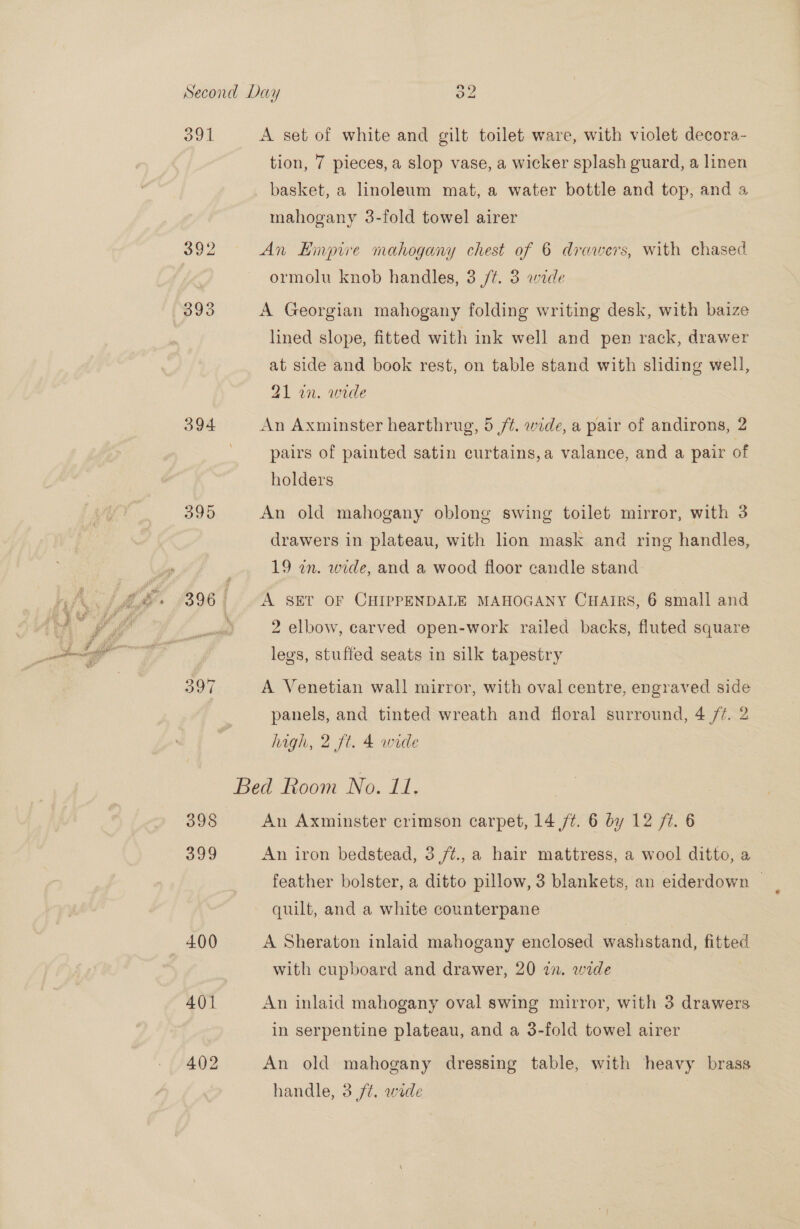 Second Day 32
391 A set of white and gilt toilet ware, with violet decora-
tion, 7 pieces, a slop vase, a wicker splash guard, a linen
basket, a linoleum mat, a water bottle and top, and a
mahogany 3-fold towel airer
392 An Empire mahogany chest of 6 drawers, with chased
ormolu knob handles, 3 ft. 3 wide
393 A Georgian mahogany folding writing desk, with baize
lined slope, fitted with ink well and pen rack, drawer
at side and book rest, on table stand with sliding well,
21 in. wide
394 An Axminster hearthrug, 5 ft. wide, a pair of andirons, 2
pairs of painted satin curtains, a valance, and a pair of
holders
395 An old mahogany oblong swing toilet mirror, with 3
drawers in plateau, with lion mask and ring handles,
19 in. wide, and a wood floor candle stand
396 A SET OF CHIPPENDALE MAHOGANY CHAIRS, 6 small and
2 elbow, carved open-work railed backs, fluted square
legs, stuffed seats in silk tapestry
397 A Venetian wall mirror, with oval centre, engraved side
panels, and tinted wreath and floral surround, 4 ft. 2
high, 2 ft. 4 wide
Bed Room No. 11.
398 An Axminster crimson carpet, 14 ft. 6 by 12 ft. 6
399 An iron bedstead, 3 ft., a hair mattress, a wool ditto, a
feather bolster, a ditto pillow, 3 blankets, an eiderdown
quilt, and a white counterpane
400 A Sheraton inlaid mahogany enclosed washstand, fitted
with cupboard and drawer, 20 in. wide
401 An inlaid mahogany oval swing mirror, with 3 drawers
in serpentine plateau, and a 3-fold towel airer
402 An old mahogany dressing table, with heavy brass
handle, 3 ft. wide